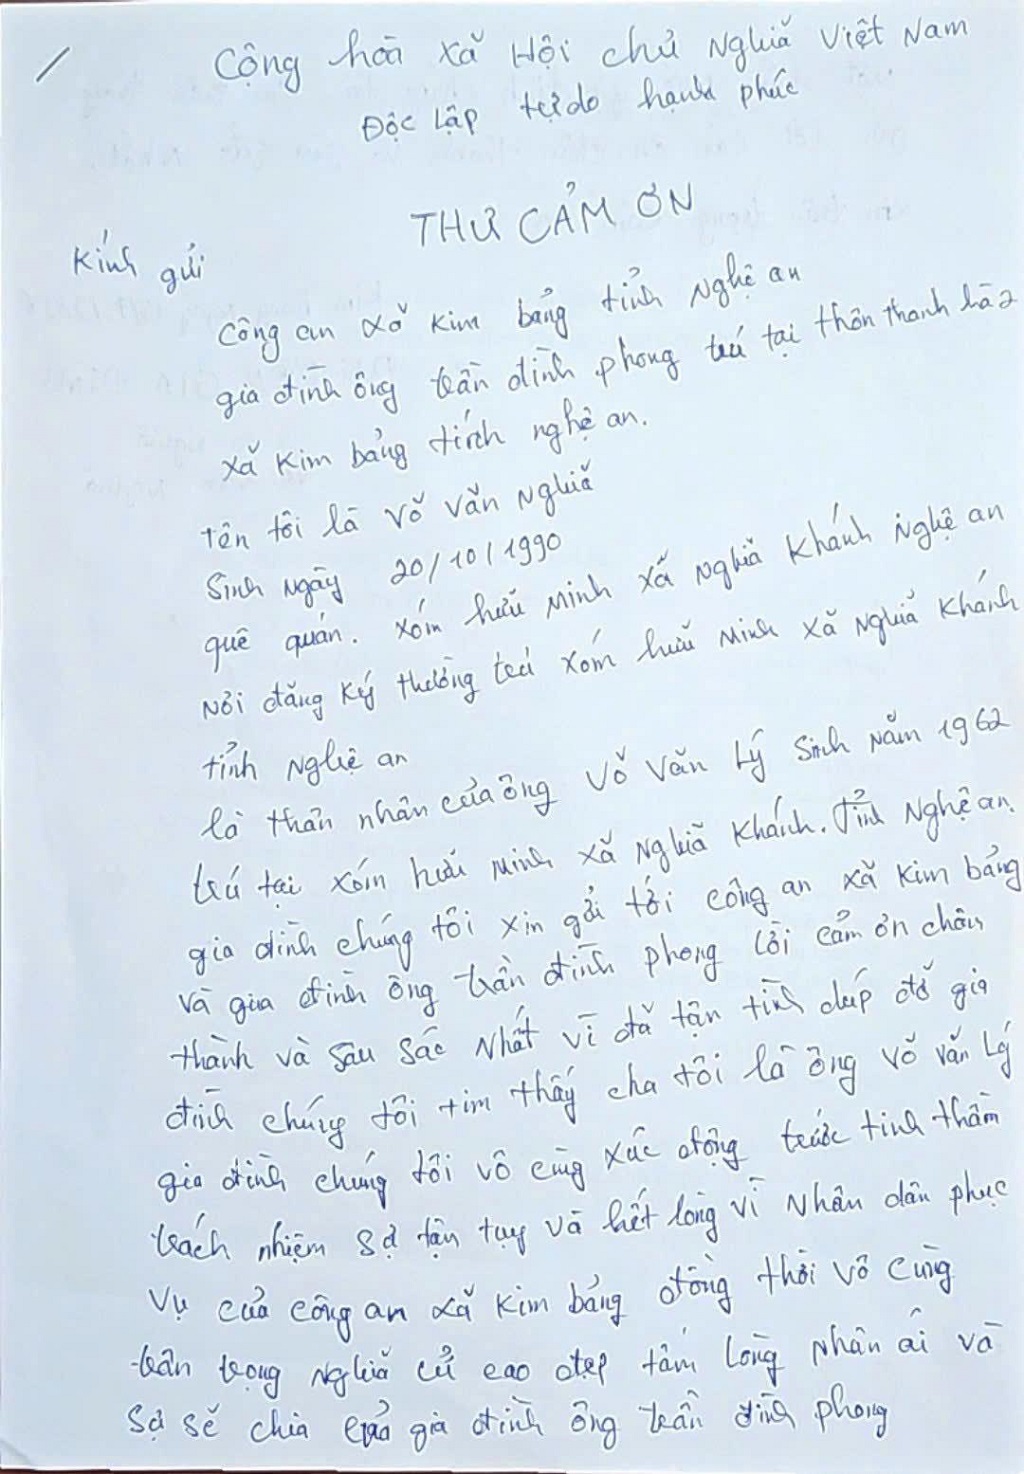 Cộng hoà xã Hội chủ Nghiã Việt Nam
Độc lập tự do hạnh phúc
THƯ CẢM ƠN
Kính gửi
Công an xã Kim bảng tỉnh Nghệ an
gia đình ông trần đình phong trú tại thôn thanh hà 2
xã Kim bảng tỉnh nghệ an.
Tên tôi là Võ Văn Nghiã
Sinh ngày 20/10/1990
quê quán. xóm hưũ Minh xã Nghiã Khánh Nghệ an
Nơi đăng ký thường trú xóm hưũ Minh xã Nghiã Khánh
tỉnh Nghệ an
là thân nhân của ông Võ Văn Lý Sinh năm 1962
trú tại xóm hưũ Minh xã Nghiã Khánh. tỉnh Nghệ an.
gia đình chúng tôi xin gửi tới công an xã Kim bảng
và gia đình ông trần đình phong lời cảm ơn chân
thành và sâu sắc nhất vì đã tận tình dúp đỡ gia
đình chúng tôi tìm thấy cha tôi là ông Võ Văn Lý
gia đình chúng tôi vô cùng xúc động trước tinh thần
trách nhiệm sự tận tụy và hết lòng vì Nhân dân phục
vụ của công an xã Kim bảng đồng thời vô cùng
trân trọng Nghiã cử cao đẹp tấm lòng nhân ái và
sự sẻ chia của gia đình ông trần đình phong